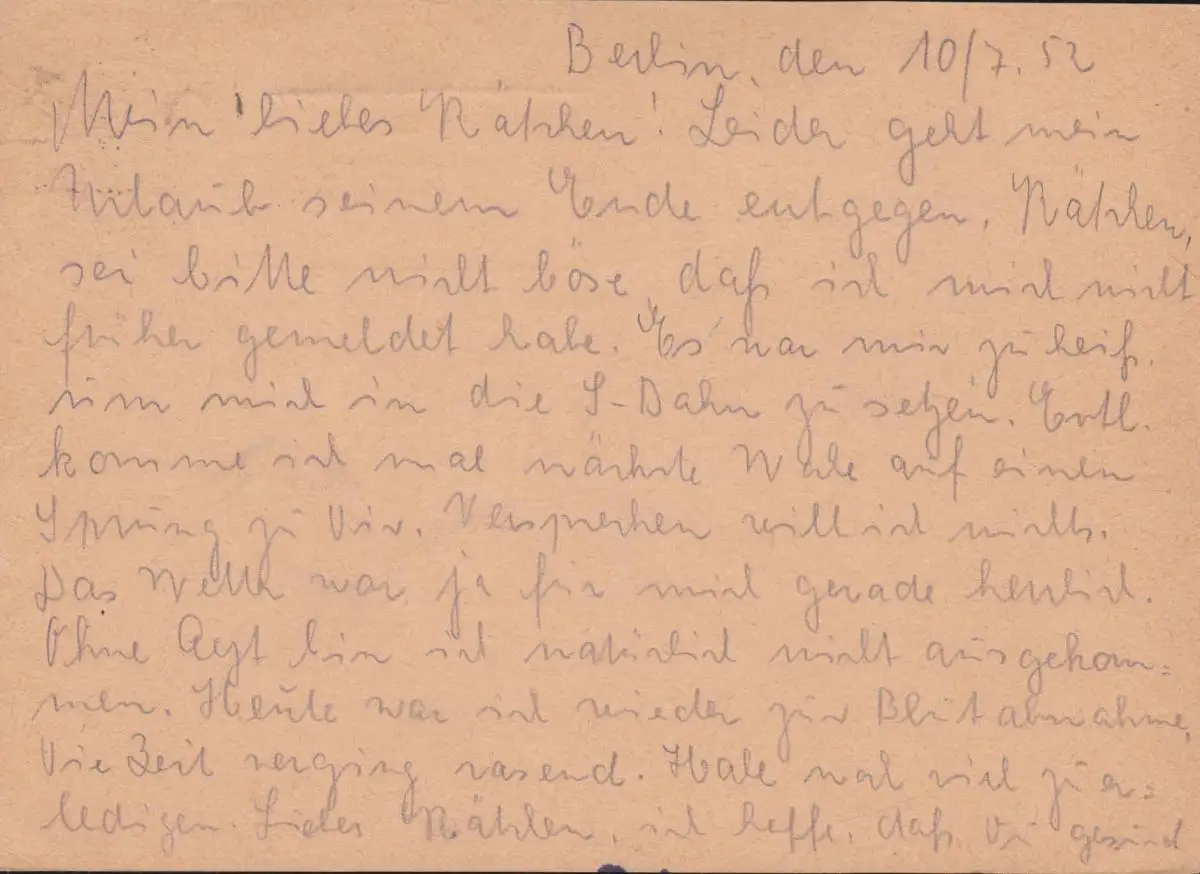 Berlin, den 10/7. 52
Mein liebes Käthchen! Leider geht mein
Urlaub seinem Ende entgegen. Käthchen,
sei bitte nicht böse, daß ich mich nicht
früher gemeldet habe. Es war mir zu heiß,
um mich in die S-Bahn zu setzen. Evtl.
komme ich mal nächste Woche auf einen
Sprung zu Dir. Versprechen will ich nichts.
Das Wetter war ja für mich gerade herrlich.
Ohne Arzt bin ich natürlich nicht ausgekom=
men. Heute war ich wieder zur Blutabnahme.
Die Zeit verging rasend. Habe noch viel zu er=
ledigen. Liebes Käthchen, ich hoffe, daß Du gesund